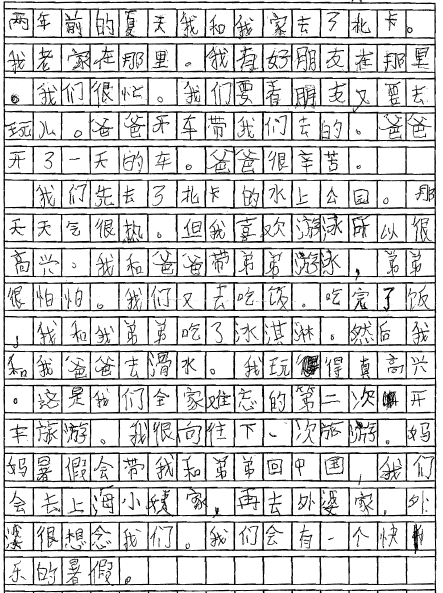 两年前的夏天我和我家去了北卡。
我老家在那里。我有好朋友在那里
。我们很忙。我们要看朋友又要去
玩儿。爸爸开车带我们去的。爸爸
开了一天的车。爸爸很辛苦。
我们先去了北卡的水上公园。那
天天气很热。但我喜欢游泳所以很
高兴。我和爸爸带弟弟游泳，弟弟
很怕怕。我们又去吃饭。吃完了饭
，我和我弟弟吃了冰淇淋。然后我
和我爸爸去滑水。我玩得真高兴
。这是我们全家难忘的第二次开
车旅游。我很向往下一次旅游。妈
妈暑假会带我和弟弟回中国，我们
会去上海小家，再去外婆家。外
婆很想念我们。我们会有一个快
乐的暑假。